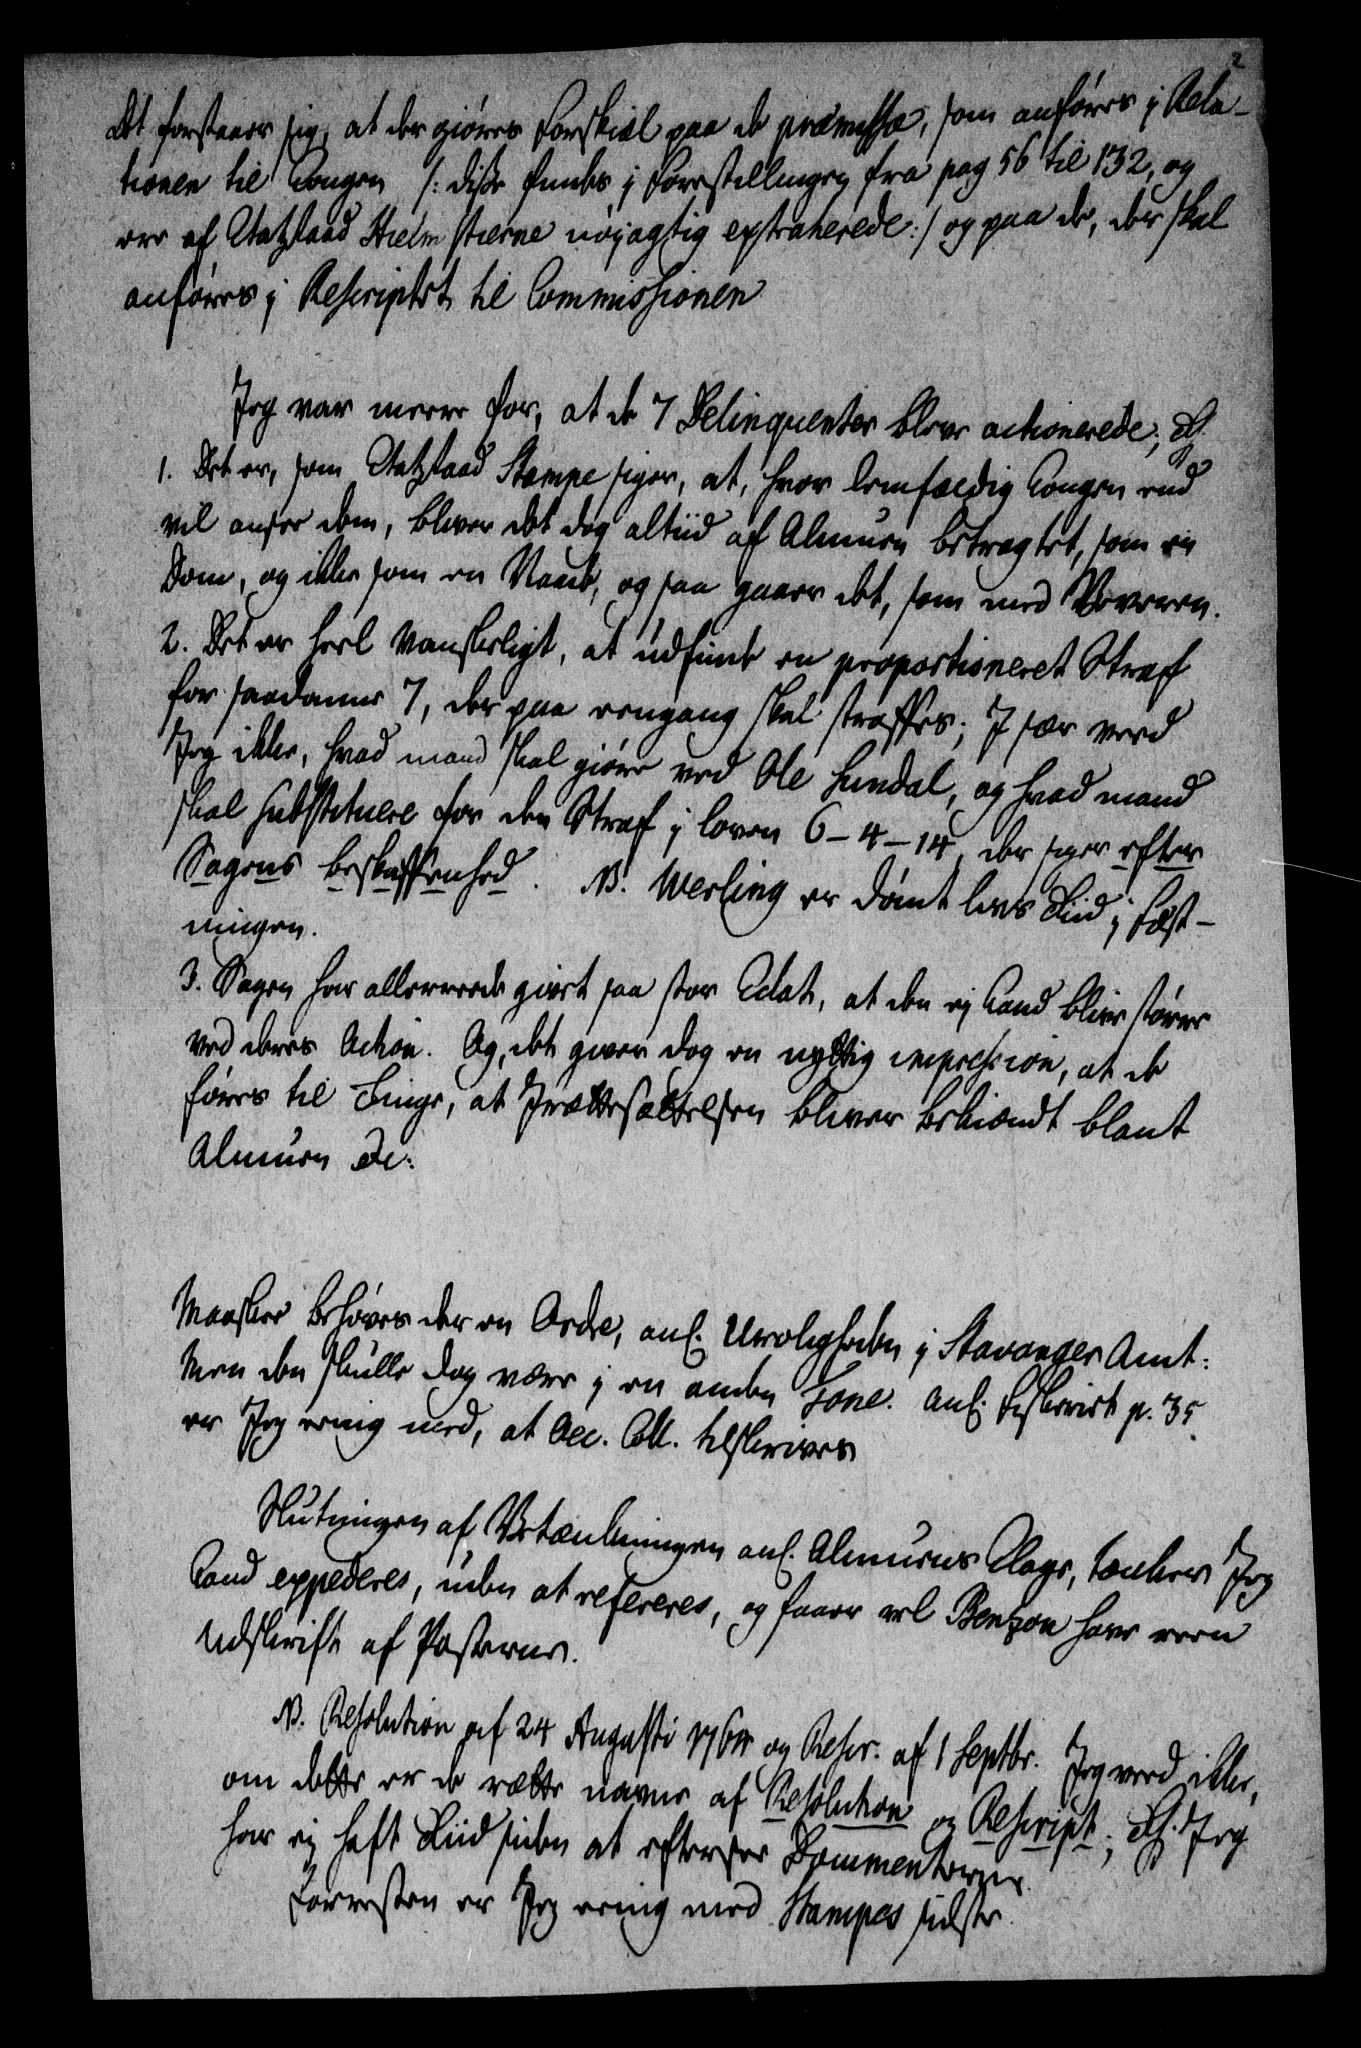 2
Det forstaaer sig, at der giøres Forskiæl paa de præmissa, som anføres j Rela-
tionen til Kongen /: disse findes j Forestillingen fra pag 56 til 132, og
ere af Etatzraad Hielmstierne nöyagtig extraherede :/ og paa de, der skal
anføres j Rescriptet til Commissionen
Jeg var meere for, at de 7 Delinquenter blev actionerede; Thi
1. Det er, som Etatzraad Stampe siger, at, hvor lemfældig Kongen end
vil ansee dem, bliver det dog altiid af Almuen betragtet, som en
Dom, og ikke som en Naade, og saa gaaer det, som med
2. Det er heel vanskeligt, at udfinde en proportioneret Straf
for saadanne 7, der paa eengang skal straffes; J sær veed
Jeg ikke, hvad mand skal giøre ved Ole Lundal, og hvad mand
skal substituere for den Straf j loven 6-4-14, der siger efter
Sagens beskaffenhed. NB. Werling er dömt livs Tiid j Fæst-
ningen.
3. Sagen har allerreede giort saa stor Eclat, at den ej Kand blive större
ved deres Action. Og, det giver dog en nyttig impression, at de
føres til Tinge, at Jrættesættelsen bliver bekiendt blant
Almuen &c:
Maaskee behøves der en Ordre, anl. Uroligheden j Stavanger Amt:
Men den skulle dog være j en anden Tone. anl. Fiskeriet p. 35
er Jeg eenig med, at Oec. Coll. tilskrives
Slutningen af Betænkningen anl. Almuens Klage, tænker Jeg
Kand expederes, uden at refereres, og faaer vel Benzon have een
Udskrift af Posterne.
NB. Resolution af 24 Augusti og Rescr. af 1 Septbr. Jeg veed ikke,
om dette er de rætte navne af Resolution og Rescript; Thi Jeg
har ej haft Tiid siden at eftersee Documenterne.
Forresten er Jeg eenig med Stampes sidste.